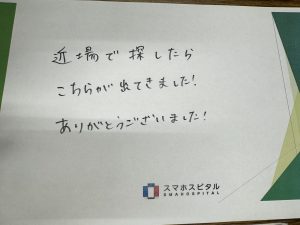 近場で探したら
こちらが出てきました!
ありがとうございました!
スマホスピタル
SMAHOSPITAL